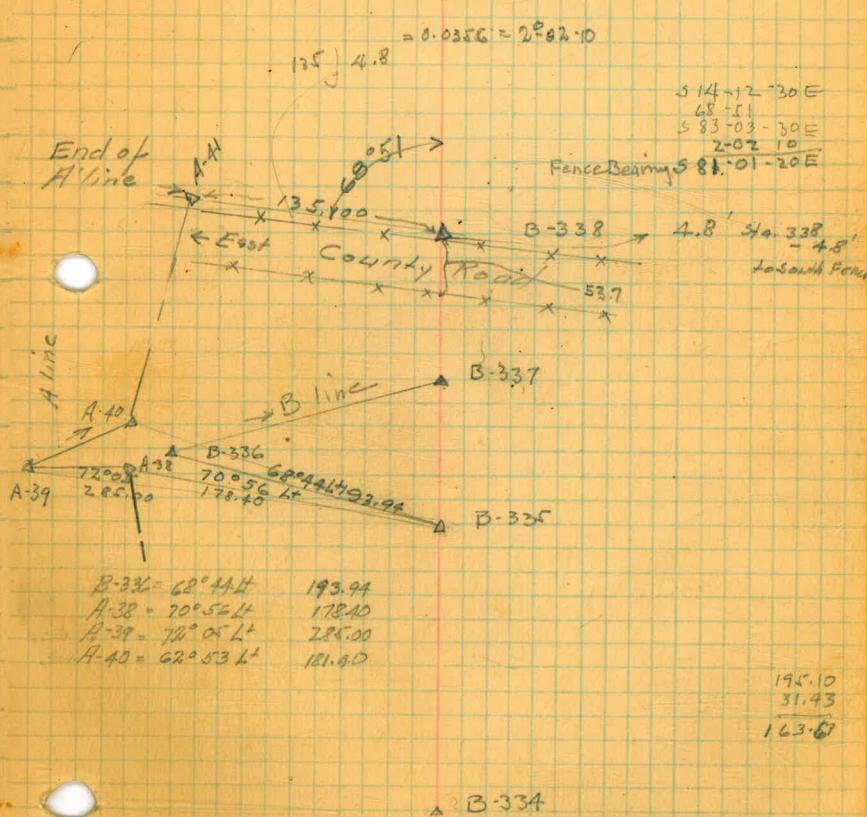 = 0.0356 = 2°-02-10
135 ) 4.8
S 14-12-30 E
68-51
S 83-03-30 E
2-02 10
Fence Bearing S 81-01-20 E
End of
A line
A-41
68°51
135.00
B-338
4.8' Sta. 338
- 4.8'
to South Fence
← East
County Road
53.7
A line
B-337
→ B line
A-40
B-336
A-38
68°44 Lt 193.94
72°05
70°56 Lt
A-39
285.00
178.40
B-335
B-336 = 68°44 Lt 193.94
A-38 = 70°56 Lt 178.40
A-39 = 72°05 Lt 285.00
A-40 = 62°53 Lt 181.40
195.10
31.43
163.67
B-334